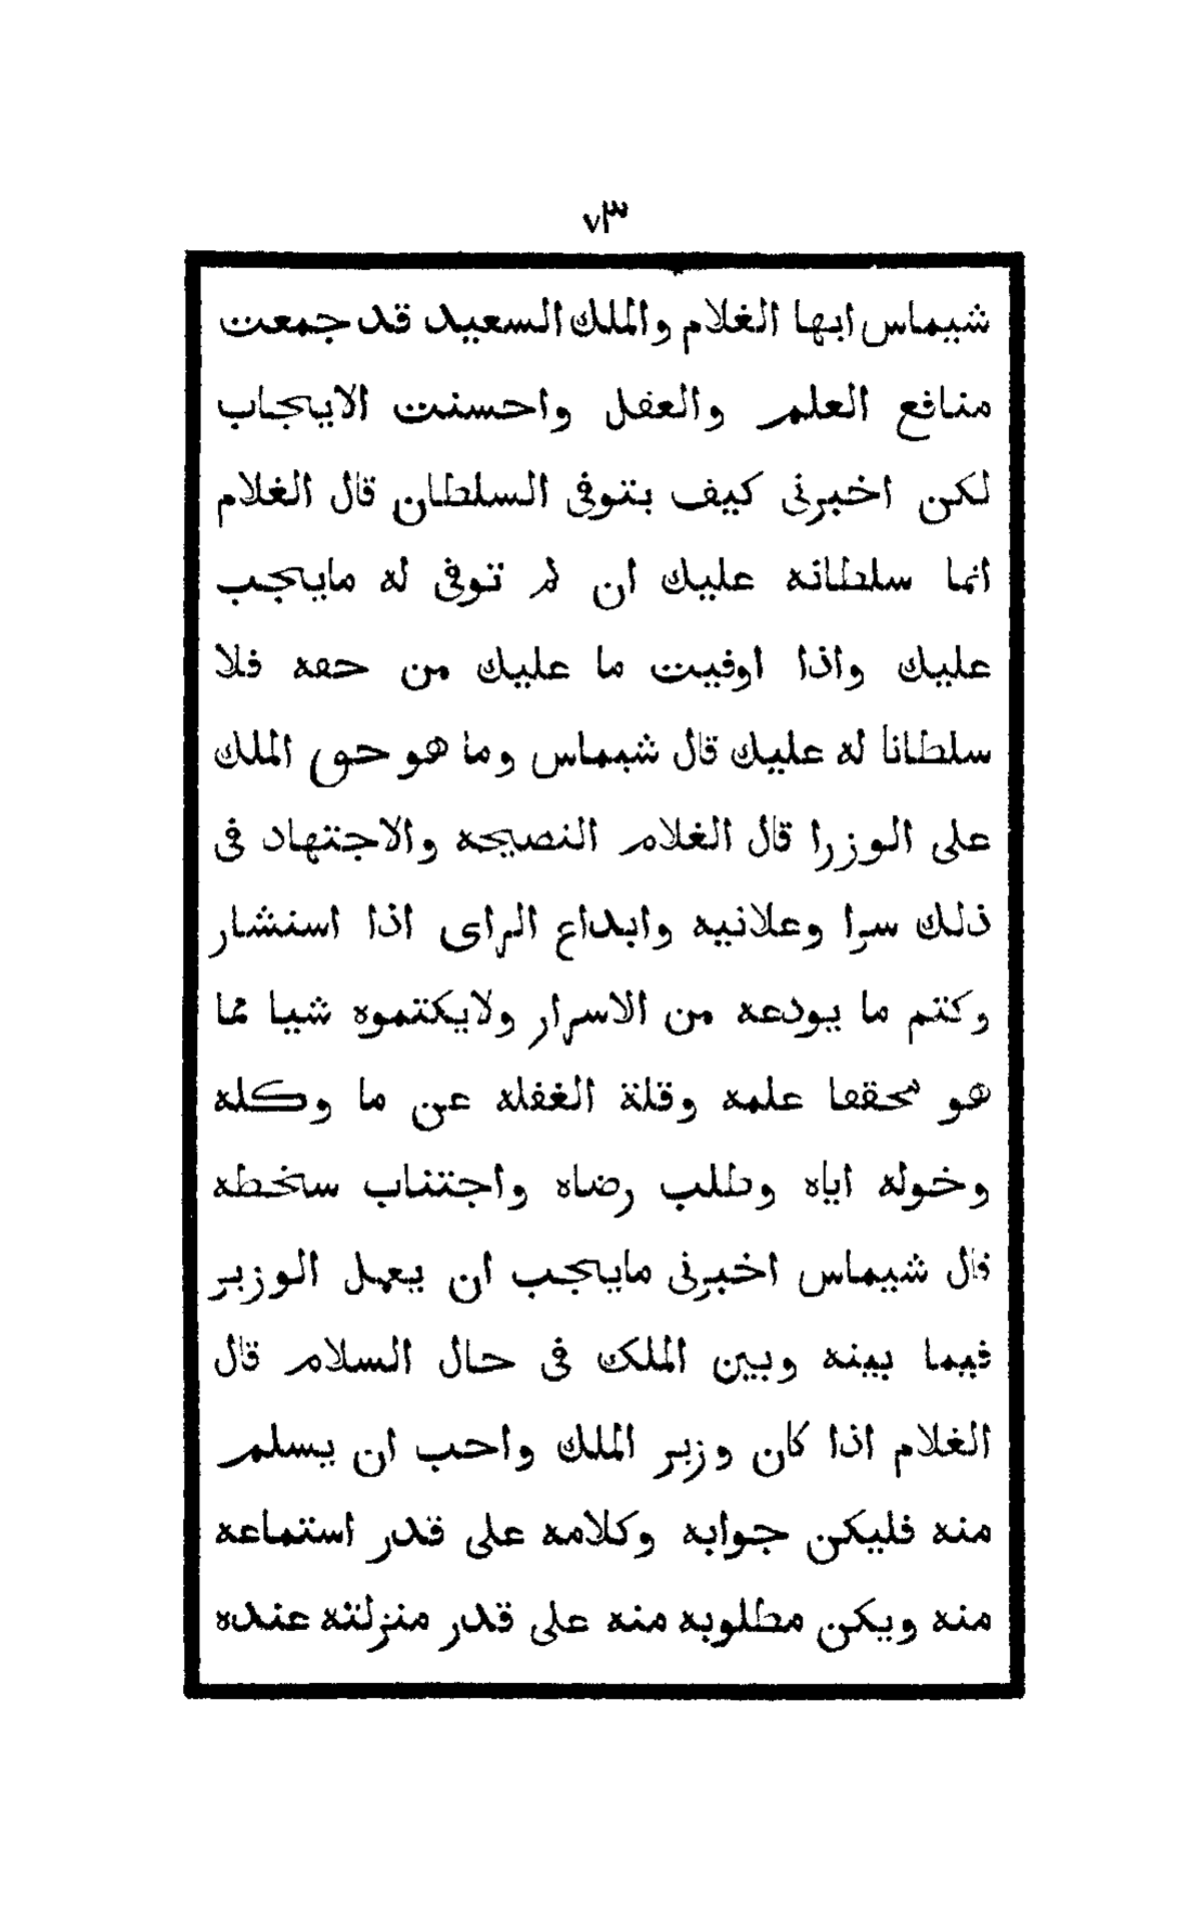 ٧٣
شيماس ايها الغلام والملك السعيد قد جمعت
منافع العلم والعقل واحسنت الايجاب
لكن اخبرنى كيف يتوفى السلطان قال الغلام
انما سلطانه عليك ان لم توفى له مايجب
عليك واذا اوفيت ما عليك من حقه فلا
سلطانا له عليك قال شيماس وما هو حق الملك
على الوزرا قال الغلام النصيحه والاجتهاد فى
ذلك سرا وعلانيه وابداع الراى اذا استشار
وكتم ما يودعه من الاسرار ولايكتموه شيا مما
هو محققا علمه وقلة الغفله عن ما وكله
وخوله اياه وطلب رضاه واجتناب سخطه
قال شيماس اخبرنى مايجب ان يعمل الوزير
فيما بينه وبين الملك فى حال السلام قال
الغلام اذا كان وزير الملك واحب ان يسلم
منه فليكن جوابه وكلامه على قدر استماعه
منه ويكن مطلوبه منه على قدر منزلته عنده